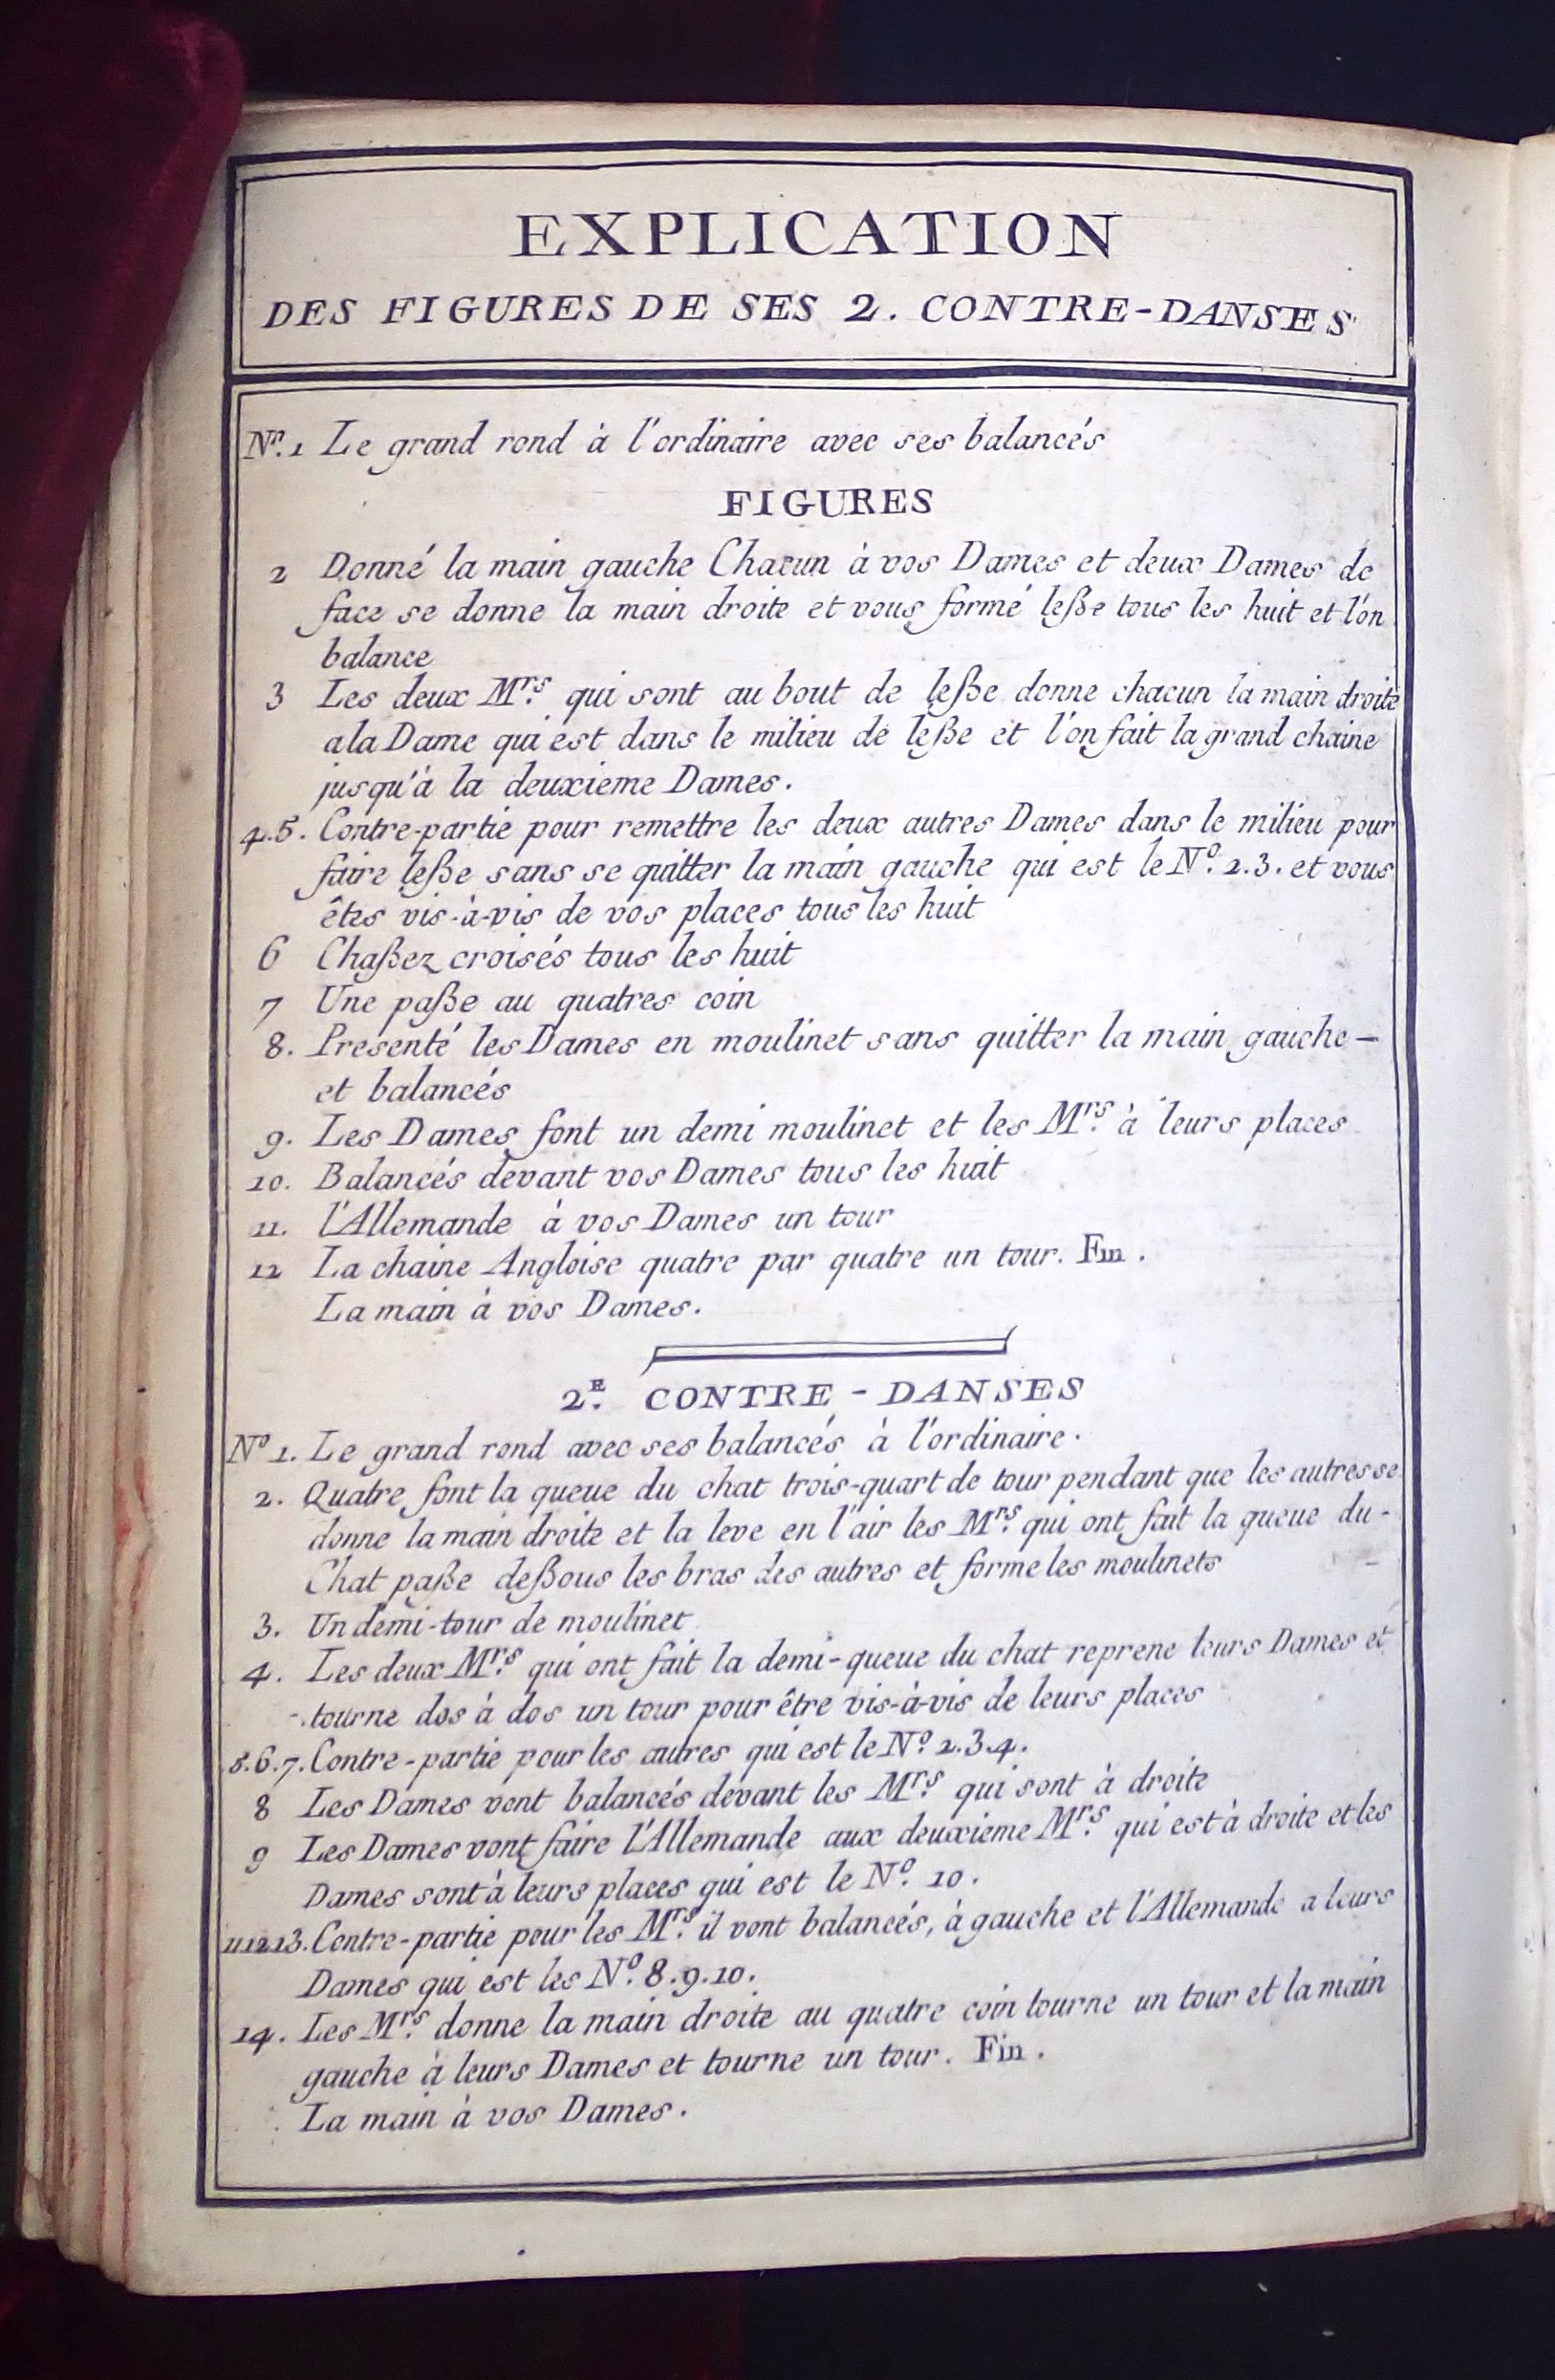 EXPLICATION
DES FIGURES DE SES 2. CONTRE-DANSES
No. 1 Le grand rond à l'ordinaire avec ses balancés
FIGURES
2 Donné la main gauche Chacun à vos Dames et deux Dames de
face se donne la main droite et vous formé leße tous les huit et l'on
balance
3 Les deux Mrs. qui sont au bout de leße donne chacun la main droite
a la Dame qui est dans le milieu de leße et l'on fait la grand chaine
jusqu'à la deuxieme Dames.
4.5. Contre-partie pour remettre les deux autres Dames dans le milieu pour
faire leße sans se quitter la main gauche qui est le No. 2.3. et vous
êtes vis-à-vis de vos places tous les huit
6 Chaßez croisés tous les huit
7 Une paße au quatres coin
8. Presenté les Dames en moulinet sans quitter la main gauche —
et balancés
9. Les Dames font un demi moulinet et les Mrs. à leurs places
10. Balancés devant vos Dames tous les huit
11. l'Allemande à vos Dames un tour
12 La chaine Angloise quatre par quatre un tour. Fin.
La main à vos Dames.
2E. CONTRE - DANSES
No 1. Le grand rond avec ses balancés à l'ordinaire.
2. Quatre font la queue du chat trois-quart de tour pendant que les autres se
donne la main droite et la leve en l'air les Mrs. qui ont fait la queue du -
Chat paße deßous les bras des autres et forme les moulinets
3. Un demi-tour de moulinet
4. Les deux Mrs. qui ont fait la demi-queue du chat reprene leurs Dames et
tourne dos à dos un tour pour être vis-à-vis de leurs places
5.6.7. Contre-partie pour les autres qui est le No. 2.3.4.
8 Les Dames vont balancés devant les Mrs. qui sont à droite
9 Les Dames vont faire l'Allemande aux deuxieme Mrs. qui est à droite et les
Dames sont à leurs places qui est le No. 10.
11 12 13. Contre-partie pour les Mrs. il vont balancés, à gauche et l'Allemande a leurs
Dames qui est les No. 8.9.10.
14. Les Mrs. donne la main droite au quatre coin tourne un tour et la main
gauche à leurs Dames et tourne un tour. Fin.
La main à vos Dames.